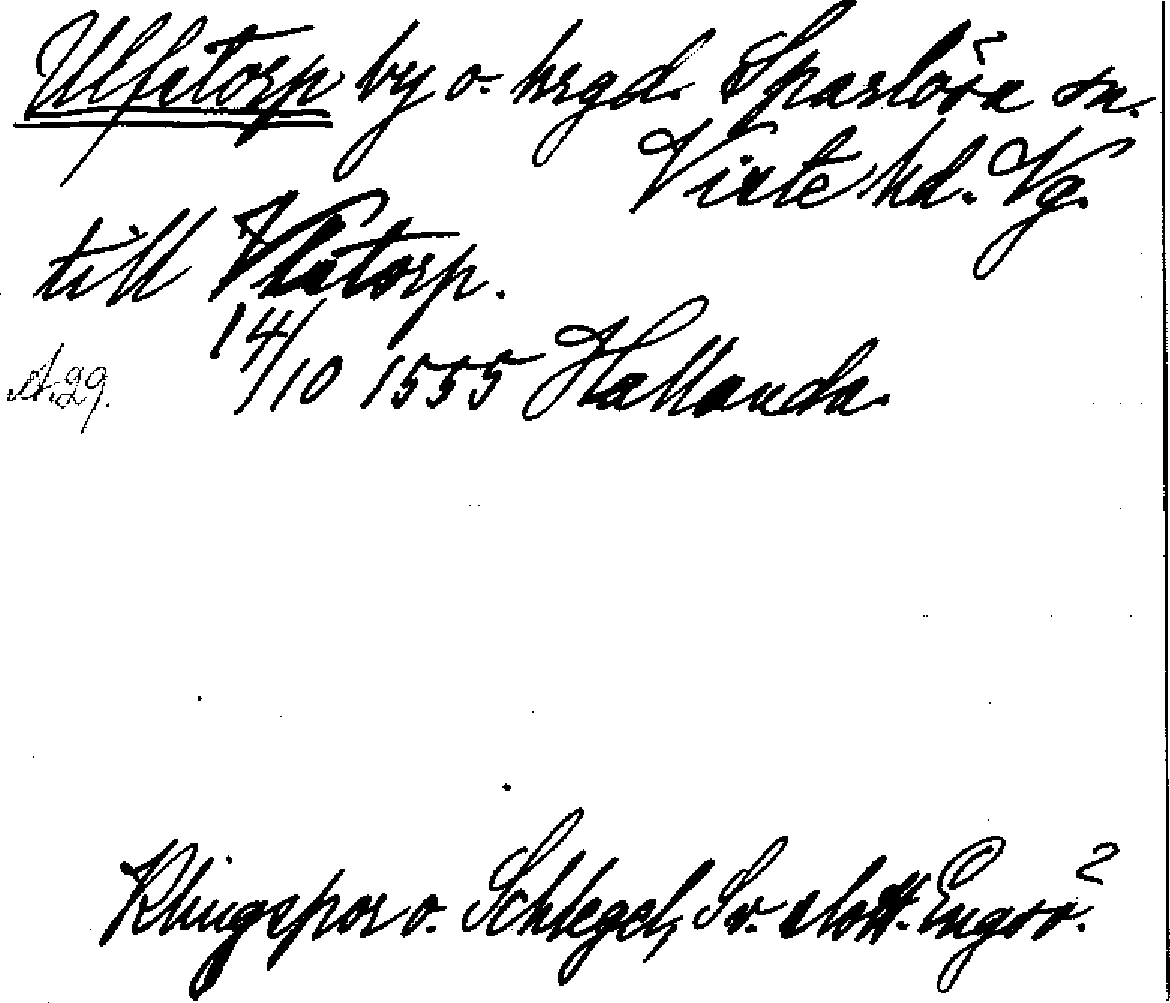 Ulfstorp by o. hrgd. Sparlösa sn.
Viste hd. Vg.
till Vlstorp.
14/10 1555 Hallanda.
A. 29.
Klingspor o. Schlegel, Sv. slott. Engsö.